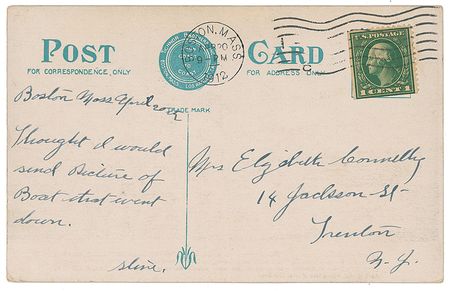 POST CARD
FOR CORRESPONDENCE, ONLY
FOR ADDRESS ONLY
BOSTON, MASS
APR 20
9 PM
1912
8
U.S. POSTAGE
1 CENT 1
TRADE MARK
Boston Mass April 20
Thought I would
send Picture of
Boat that went
down.
Mrs Elizabeth Connelly
14 Jackson St
Trenton
N. J.